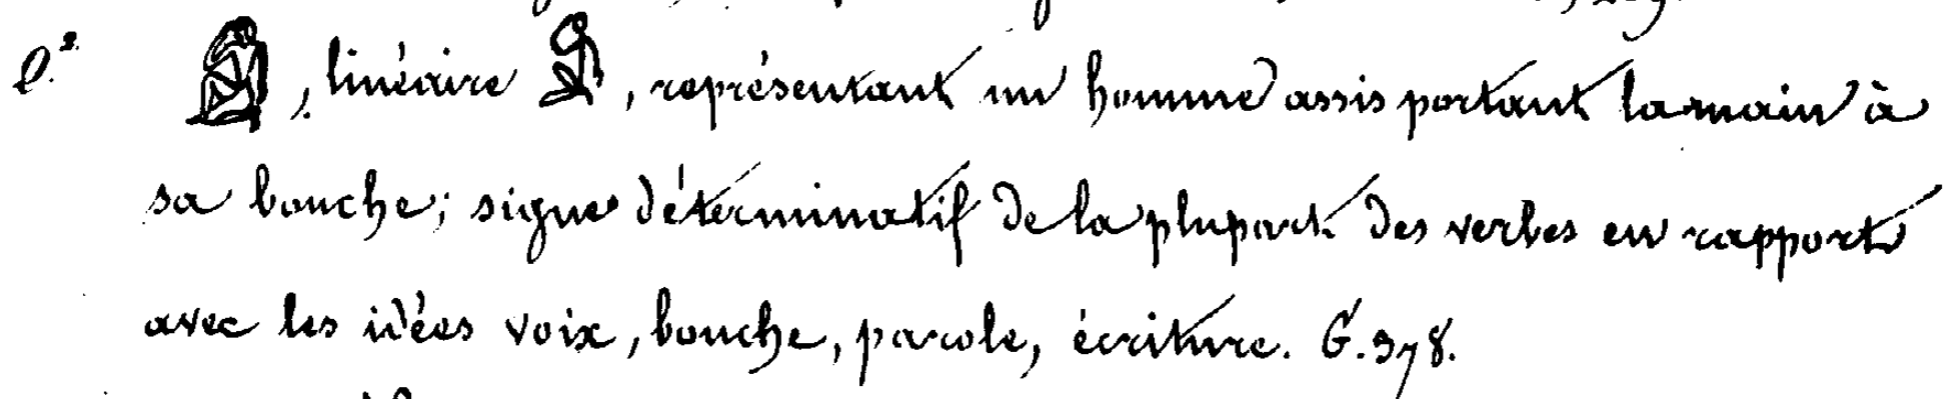 l.² 𓀁, linéaire 𓀁, représentant un homme assis portant la main à
sa bouche; signe déterminatif de la plupart des verbes en rapport
avec les idées voix, bouche, parole, écriture. G. 378.